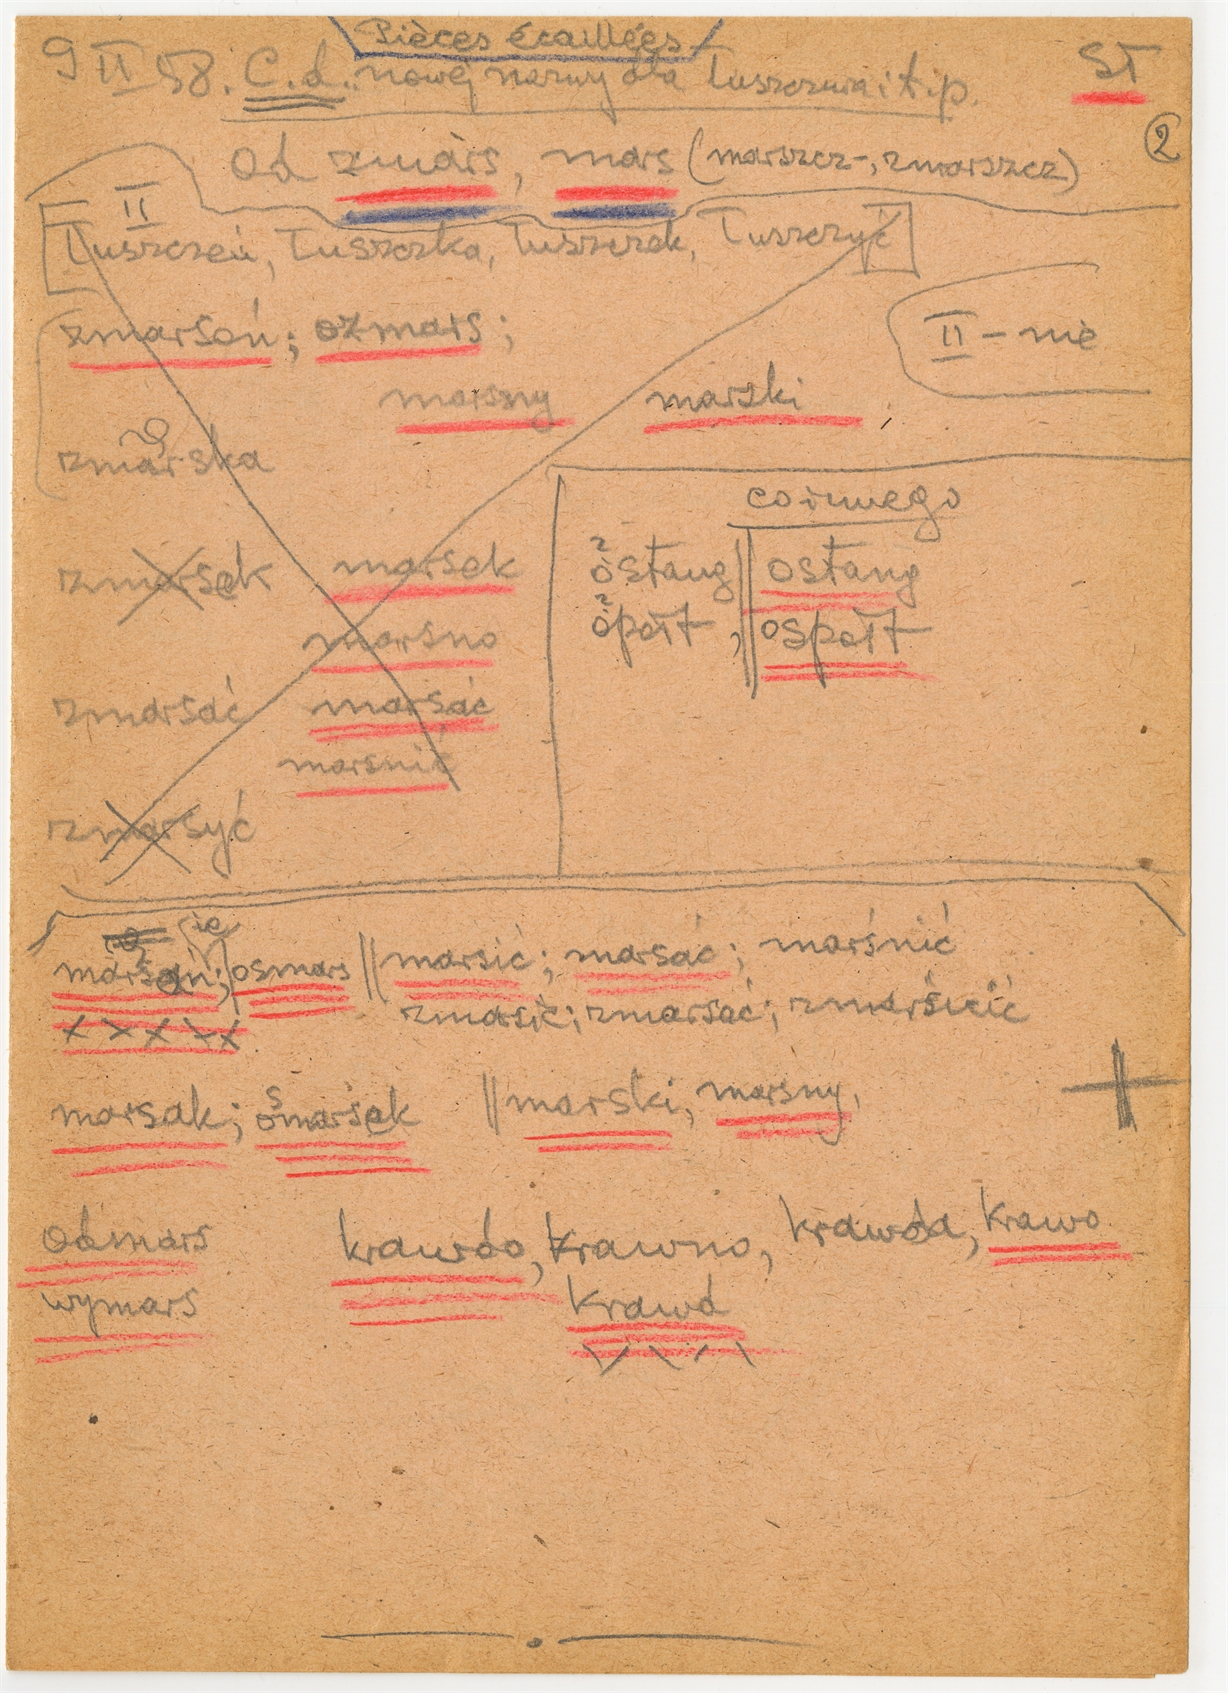 Pièces écaillées
9 II 58. C.d. nowej nazwy dla Łuszcznia i t.p. SŁ
2
Od zmars, mars (marszcz-, zmarszcz)
II
Łuszczeń, Łuszczka, Łuszczek, Łuszczyć
zmarsoń; ozmars; II – nie
marsny marski
zmarska
co innego
zmarsek marsek ostang || ostang
marsno opołt, || ospołt
zmarsać marsać
marsnić
zmarsyć
marsań; osmars || marsić; marsać; marśnić
zmarsić; zmarsać; zmarśnić
marsak; osmarsek || marski, marsny,
odmars krawdo, krawno, krawda, krawo
wymars krawd